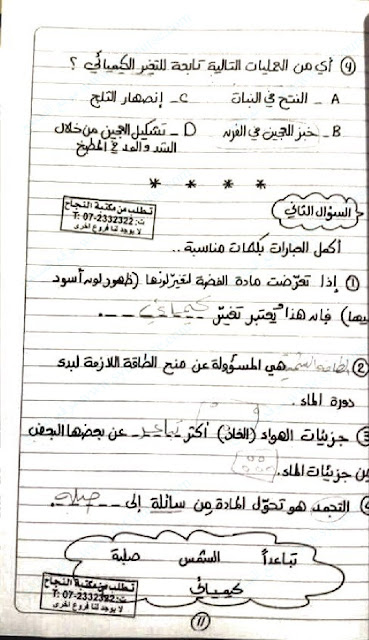 ④ أي من العمليات التالية تابعة للتغير الكيميائي ؟
A - النتح في النبات C - إنصهار الثلج
B - خبز العجين في الفرن D - تشكيل العجين من خلال
الشد والمد في المطبخ
* * * *
السؤال الثاني
تطلب من مكتبة النجاح
ت: 07-2332322 :T
لا يوجد لنا فروع اخرى
أكمل العبارات بكلمات مناسبة ..
① إذا تعرضت مادة الفضة لتغير لونها (ظهور لون أسود
عليها) فإن هذا يُعتبر تغير كيميائي .
② الشمس هي المسؤولة عن منح الطاقة اللازمة لبدء
دورة الماء .
③ جزيئات الهواء (الغاز) أكثر تباعد عن بعضها البعض
من جزيئات الماء.
التجمد هو تحوّل المادة من سائلة إلى صلبة .
تباعداً الشمس صلبة
كيميائي
تطلب من مكتبة النجاح
ت: 07-2332322 :T
لا يوجد لنا فروع اخرى
11